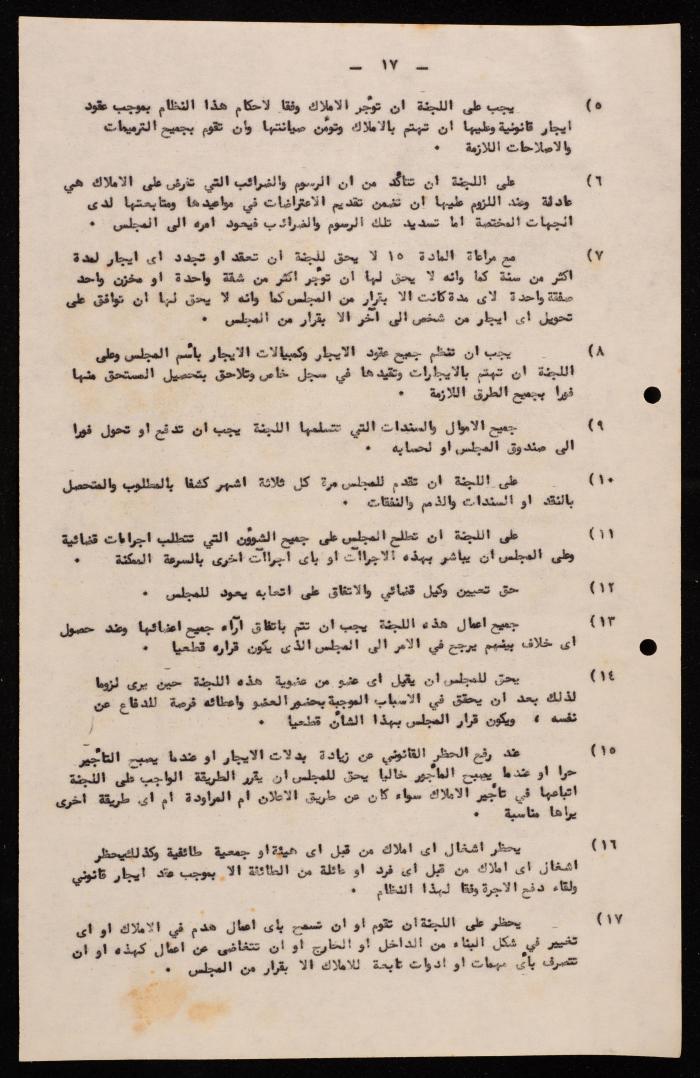 — ١٧ —
٥) يجب على اللجنة ان توّجر الاملاك وفقا لاحكام هذا النظام بموجب عقود
ايجار قانونية وعليها ان تهتم بالاملاك وتومّن صيانتها وان تقوم بجميع الترميمات
والاصلاحات اللازمة •
٦) على اللجنة ان تتأكّد من ان الرسوم والضرائب التي تفرض على الاملاك هي
عادلة وعند اللزوم عليها ان تضمن تقديم الاعتراضات في مواعيدها ومتابعتها لدى
الجهات المختصة اما تسديد تلك الرسوم والضرائب فيعود امره الى المجلس •
٧) مع مراعاة المادة ١٥ لا يحق للجنة ان تعقد او تجدد اى ايجار لمدة
اكثر من سنة كما وانه لا يحق لها ان توّجر اكثر من شقة واحدة او مخزن واحد
صفقة واحدة لاى مدة كانت الا بقرار من المجلس كما وانه لا يحق لها ان توافق على
تحويل اى ايجار من شخص الى آخر الا بقرار من المجلس •
٨) يجب ان تنظم جميع عقود الايجار وكمبيالات الايجار بأسم المجلس وعلى
اللجنة ان تهتم بالايجارات وتقيدها في سجل خاص وتلاحق بتحصيل المستحق منها
فورا بجميع الطرق اللازمة •
٩) جميع الاموال والسندات التي تتسلمها اللجنة يجب ان تدفع او تحول فورا
الى صندوق المجلس او لحسابه •
١٠) على اللجنة ان تقدم للمجلس مرة كل ثلاثة اشهر كشفا بالمطلوب والمتحصل
بالنقد او السندات والذمم والنفقات •
١١) على اللجنة ان تطلع المجلس على جميع الشوؤن التي تتطلب اجراءات قضائية
وعلى المجلس ان يباشر بهذه الاجراآت او باى اجراآت اخرى بالسرعة الممكنة •
١٢) حق تعيين وكيل قضائي والاتفاق على اتعابه يعود للمجلس •
١٣) جميع اعمال هذه اللجنة يجب ان تتم باتفاق آراء جميع اعضائها وعند حصول
اى خلاف بينهم يرجع في الامر الى المجلس الذى يكون قراره قطعيا •
١٤) يحق للمجلس ان يقيل اى عضو من عضوية هذه اللجنة حين يرى لزوما
لذلك بعد ان يحقق في الاسباب الموجبة بحضور العضو واعطائه فرصة للدفاع عن
نفسه ، ويكون قرار المجلس بهذا الشأن قطعيا •
١٥) عند رفع الحظر القانوني عن زيادة بدلات الايجار او عندما يصبح التأجير
حرا او عندما يصبح المأجور خاليا يحق للمجلس ان يقرر الطريقة الواجب على اللجنة
اتباعها في تأجير الاملاك سواء كان عن طريق الاعلان ام المراودة ام اى طريقة اخرى
يراها مناسبة •
١٦) يحظر اشغال اى املاك من قبل اى هيئة او جمعية طائفية وكذلك يحظر
اشغال اى املاك من قبل اى فرد او عائلة من الطائفة الا بموجب عقد ايجار قانوني
ولقاء دفع الاجرة وفقا لهذا النظام •
١٧) يحظر على اللجنة ان تقوم او ان تسمح باى اعمال هدم في الاملاك او اى
تغيير في شكل البناء من الداخل او الخارج او ان تتغاضى عن اعمال كهذه او ان
تتصرف بأى مهمات او ادوات تابعة للاملاك الا بقرار من المجلس •